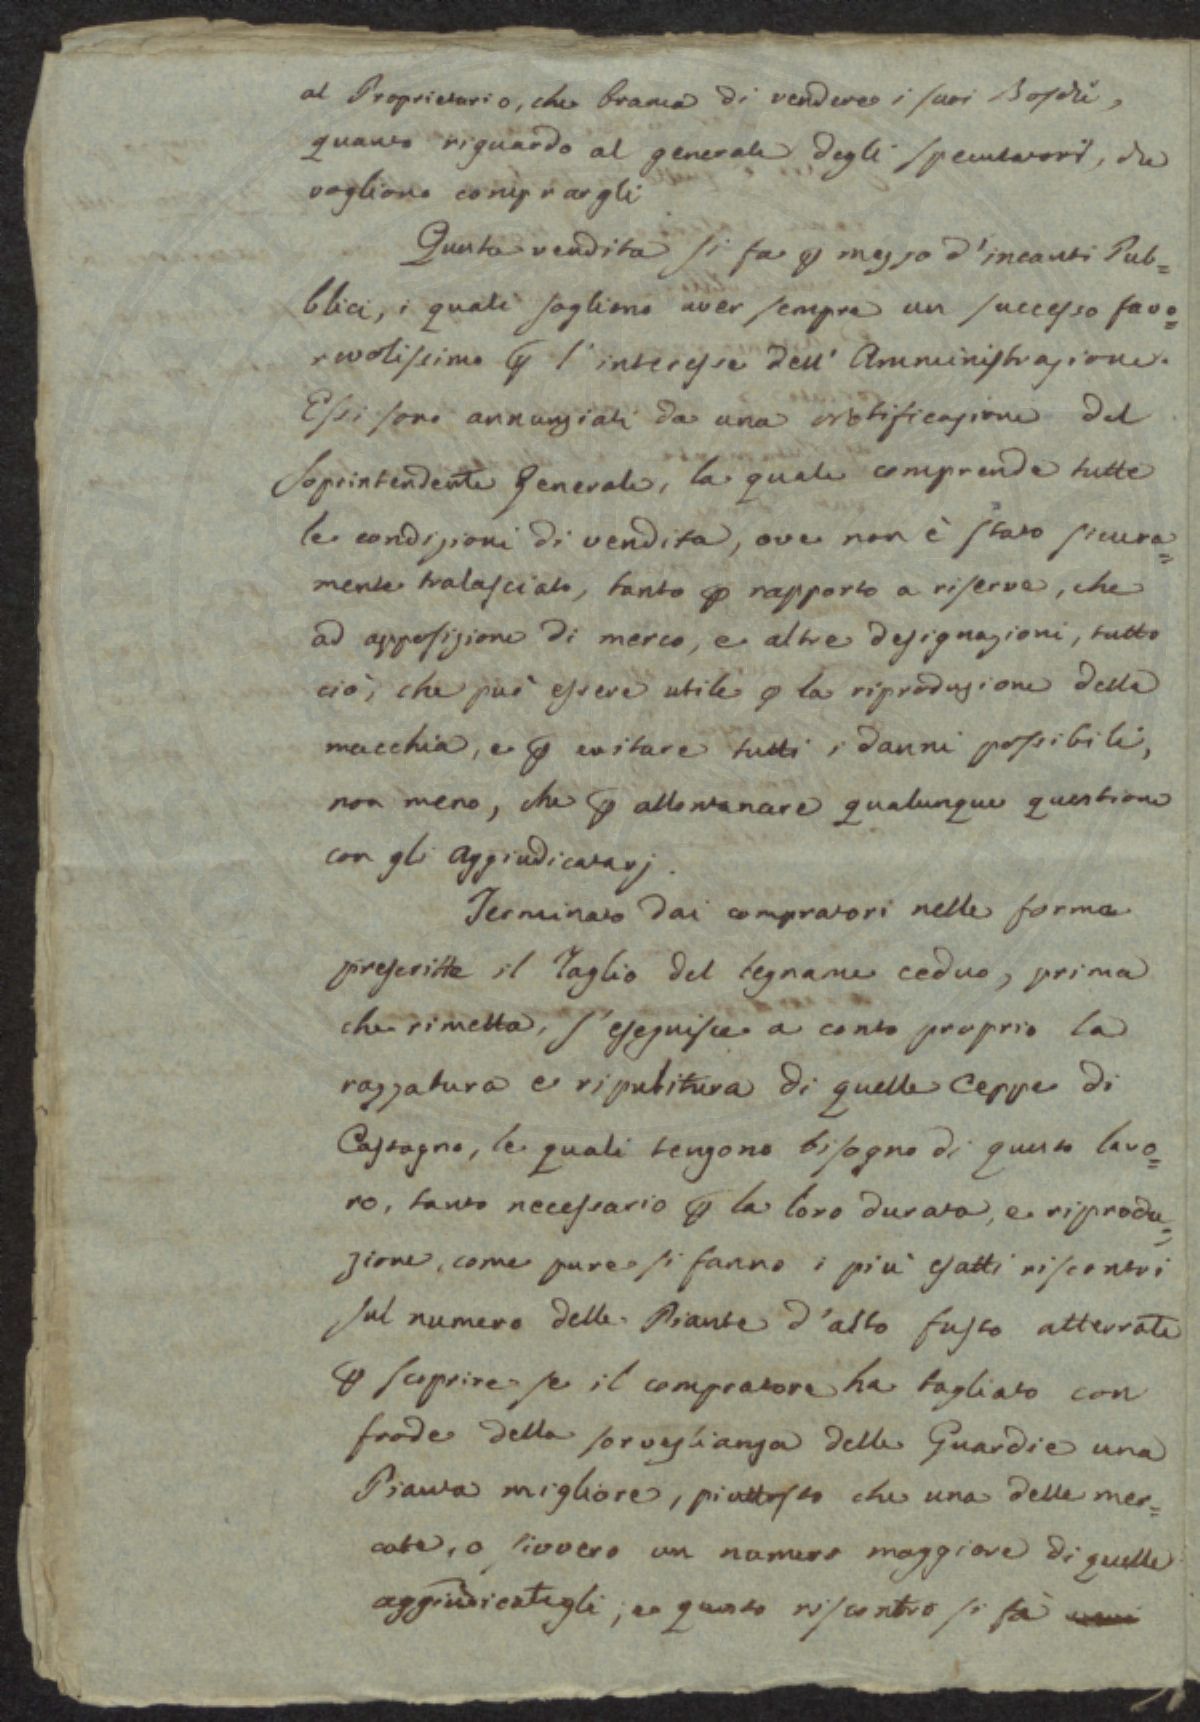 al Proprietario, che brama di vendere i suoi Boschi,
quanto riguardo al generale degli speculatori, che
vogliono comprargli
Questa vendita si fa ꝑ mezzo d'incanti Pub=
blici, i quali sogliono aver sempre un successo favo=
revolissimo ꝑ l'interesse dell' Amministrazione.
Essi sono annunziati da una Notificazione del
Soprintendente Generale, la quale comprende tutte
le condizioni di vendita, ove non è stato sicura=
mente tralasciato, tanto ꝑ rapporto a riserve, che
ad apposizione di merco, e altre designazioni, tutto
ciò, che può essere utile ꝑ la riproduzione della
macchia, e ꝑ evitare tutti i danni possibili,
non meno, che ꝑ allontanare qualunque questione
con gli Aggiudicatarj.
Terminato dai compratori nelle forme
prescritte il Taglio del legname ceduo, prima
che rimetta, s'eseguisce a conto proprio la
razzatura e ripulitura di quelle Ceppe di
Castagno, le quali tengono bisogno di questo lavo=
ro, tanto necessario ꝑ la loro durata, e riprodu=
zione, come pure si fanno i più esatti riscontri
sul numero delle Piante d'alto fusto atterrate
ꝑ scoprire se il compratore ha tagliato con
frode della sorveglianza delle Guardie una
Pianta migliore, piuttosto che una delle mer=
cate, o sivvero un numero maggiore di quelle
aggiudicategli; e questo riscontro si fà